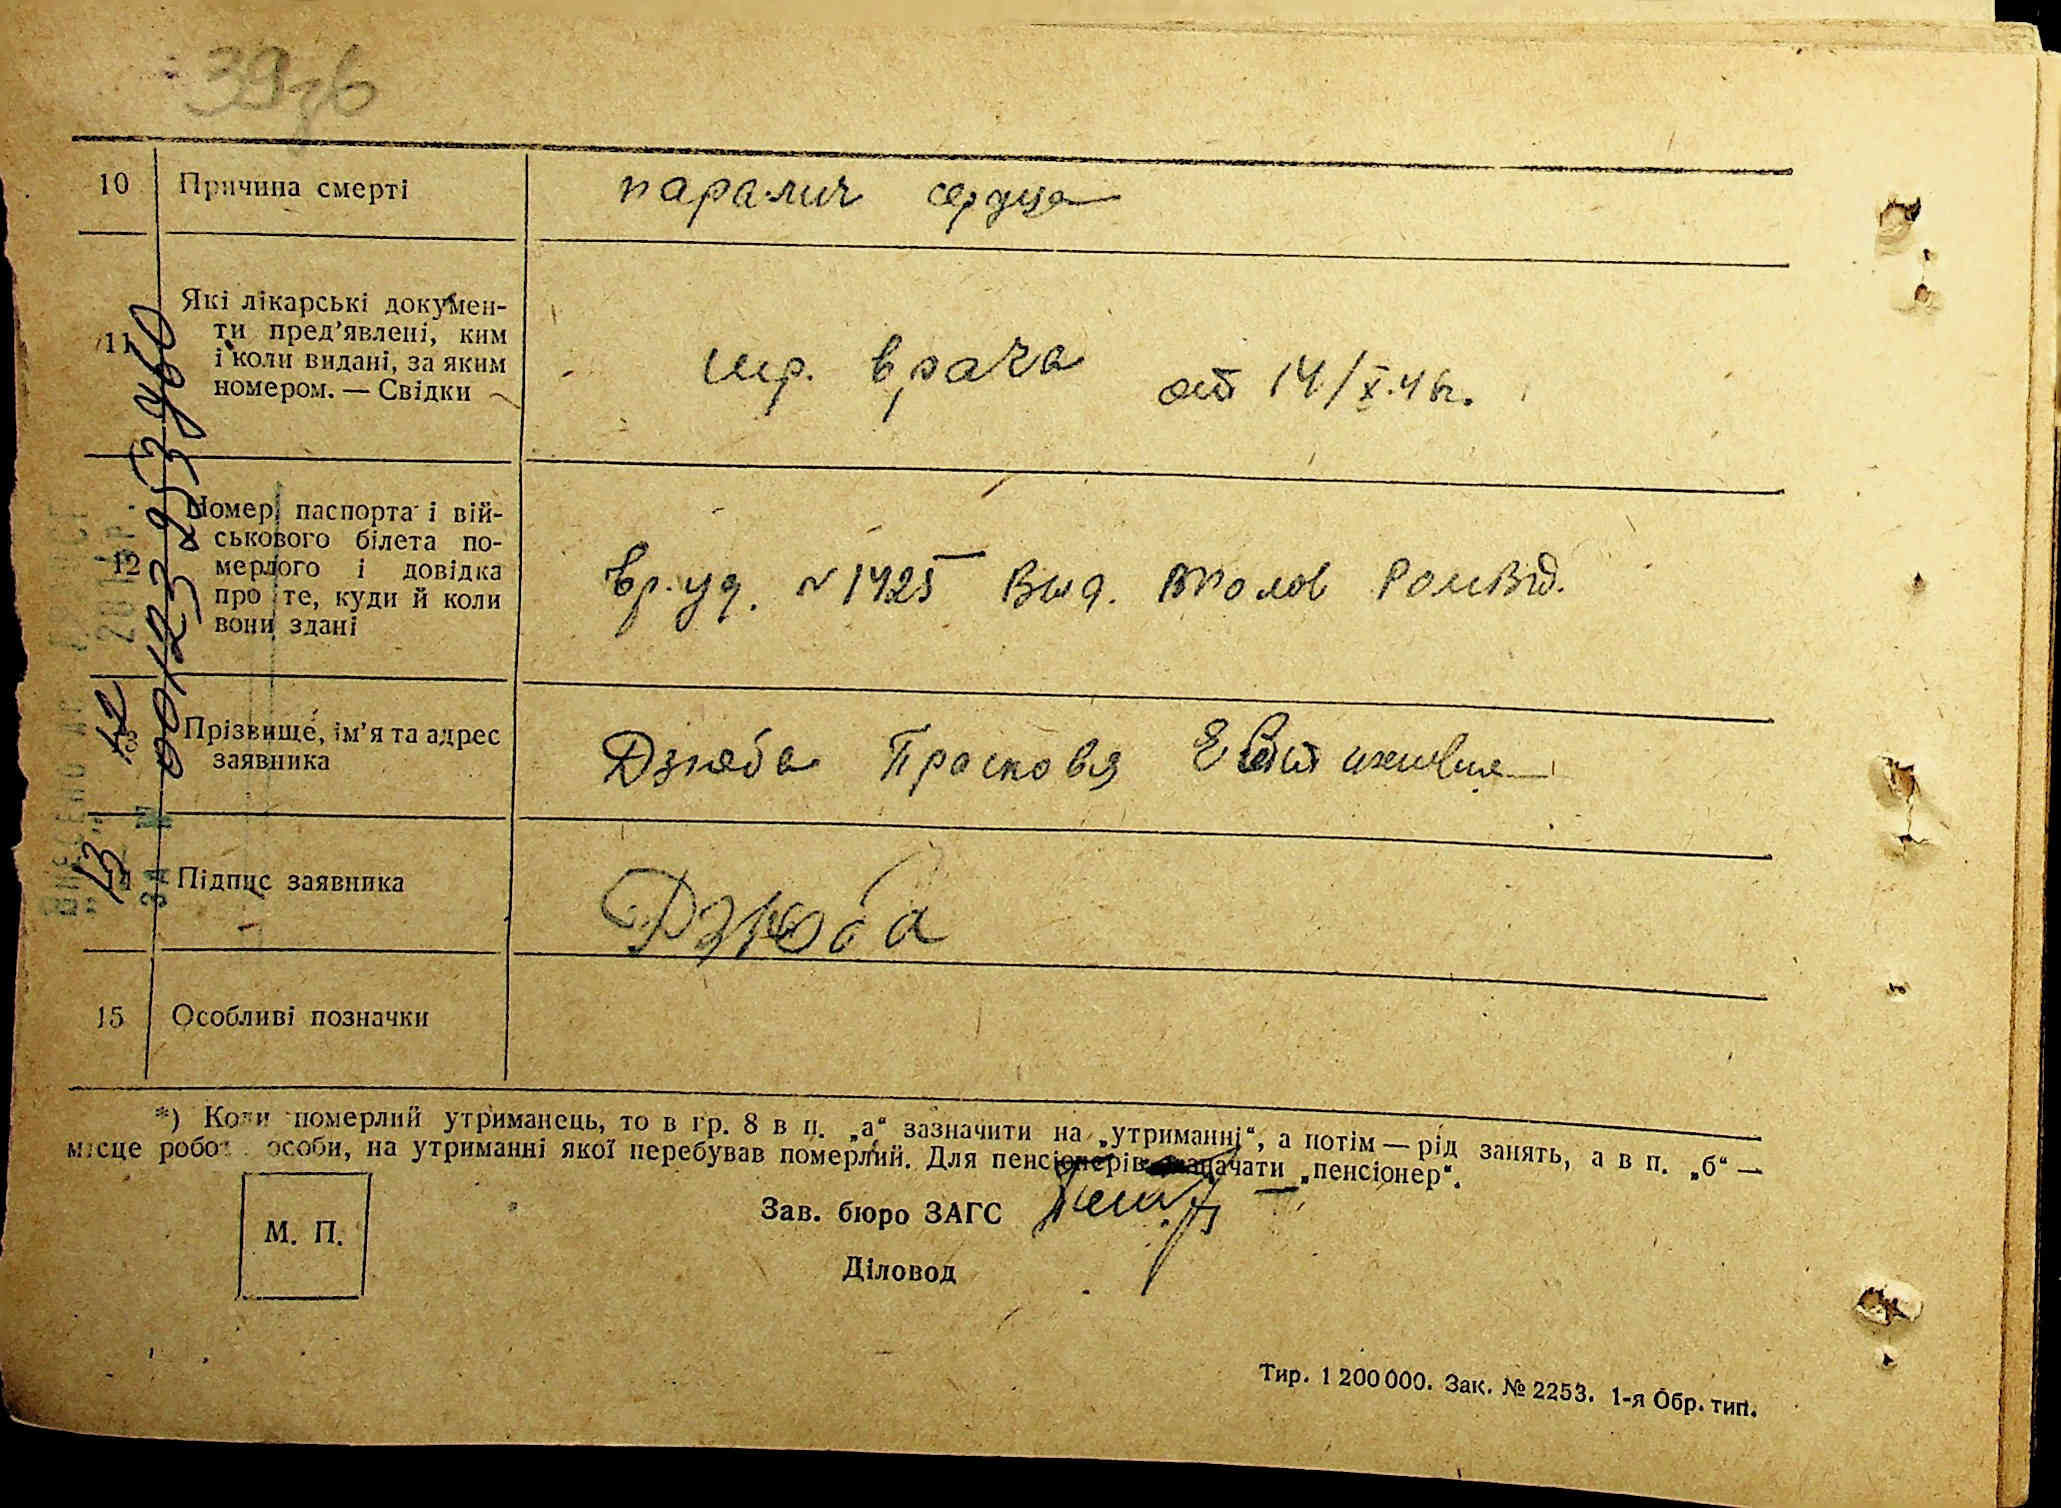 10 Причина смерті паралич сердца
11 Які лікарські докумен-
ти пред’явлені, ким
і коли видані, за яким
номером. — Свідки
врача от 14/X.46г.
12 Номер паспорта і вій-
ськового білета по-
мерлого і довідка
про те, куди й коли
вони здані
вр. уд. № 1425 выд.
13 Прізвище, ім’я та адрес
заявника
Дзюба Прасковя
14 Підпис заявника Дзюба
15 Особливі позначки
*) Коли померлий утриманець, то в гр. 8 в п. „а“ зазначити на „утриманні“, а потім — рід занять, а в п. „б“ —
місце роботи особи, на утриманні якої перебував померлий. Для пенсіонерів зазначати „пенсіонер“.
М. П.
Зав. бюро ЗАГС
Діловод
Тир. 1 200 000. Зак. № 2253. 1-я Обр. тип.